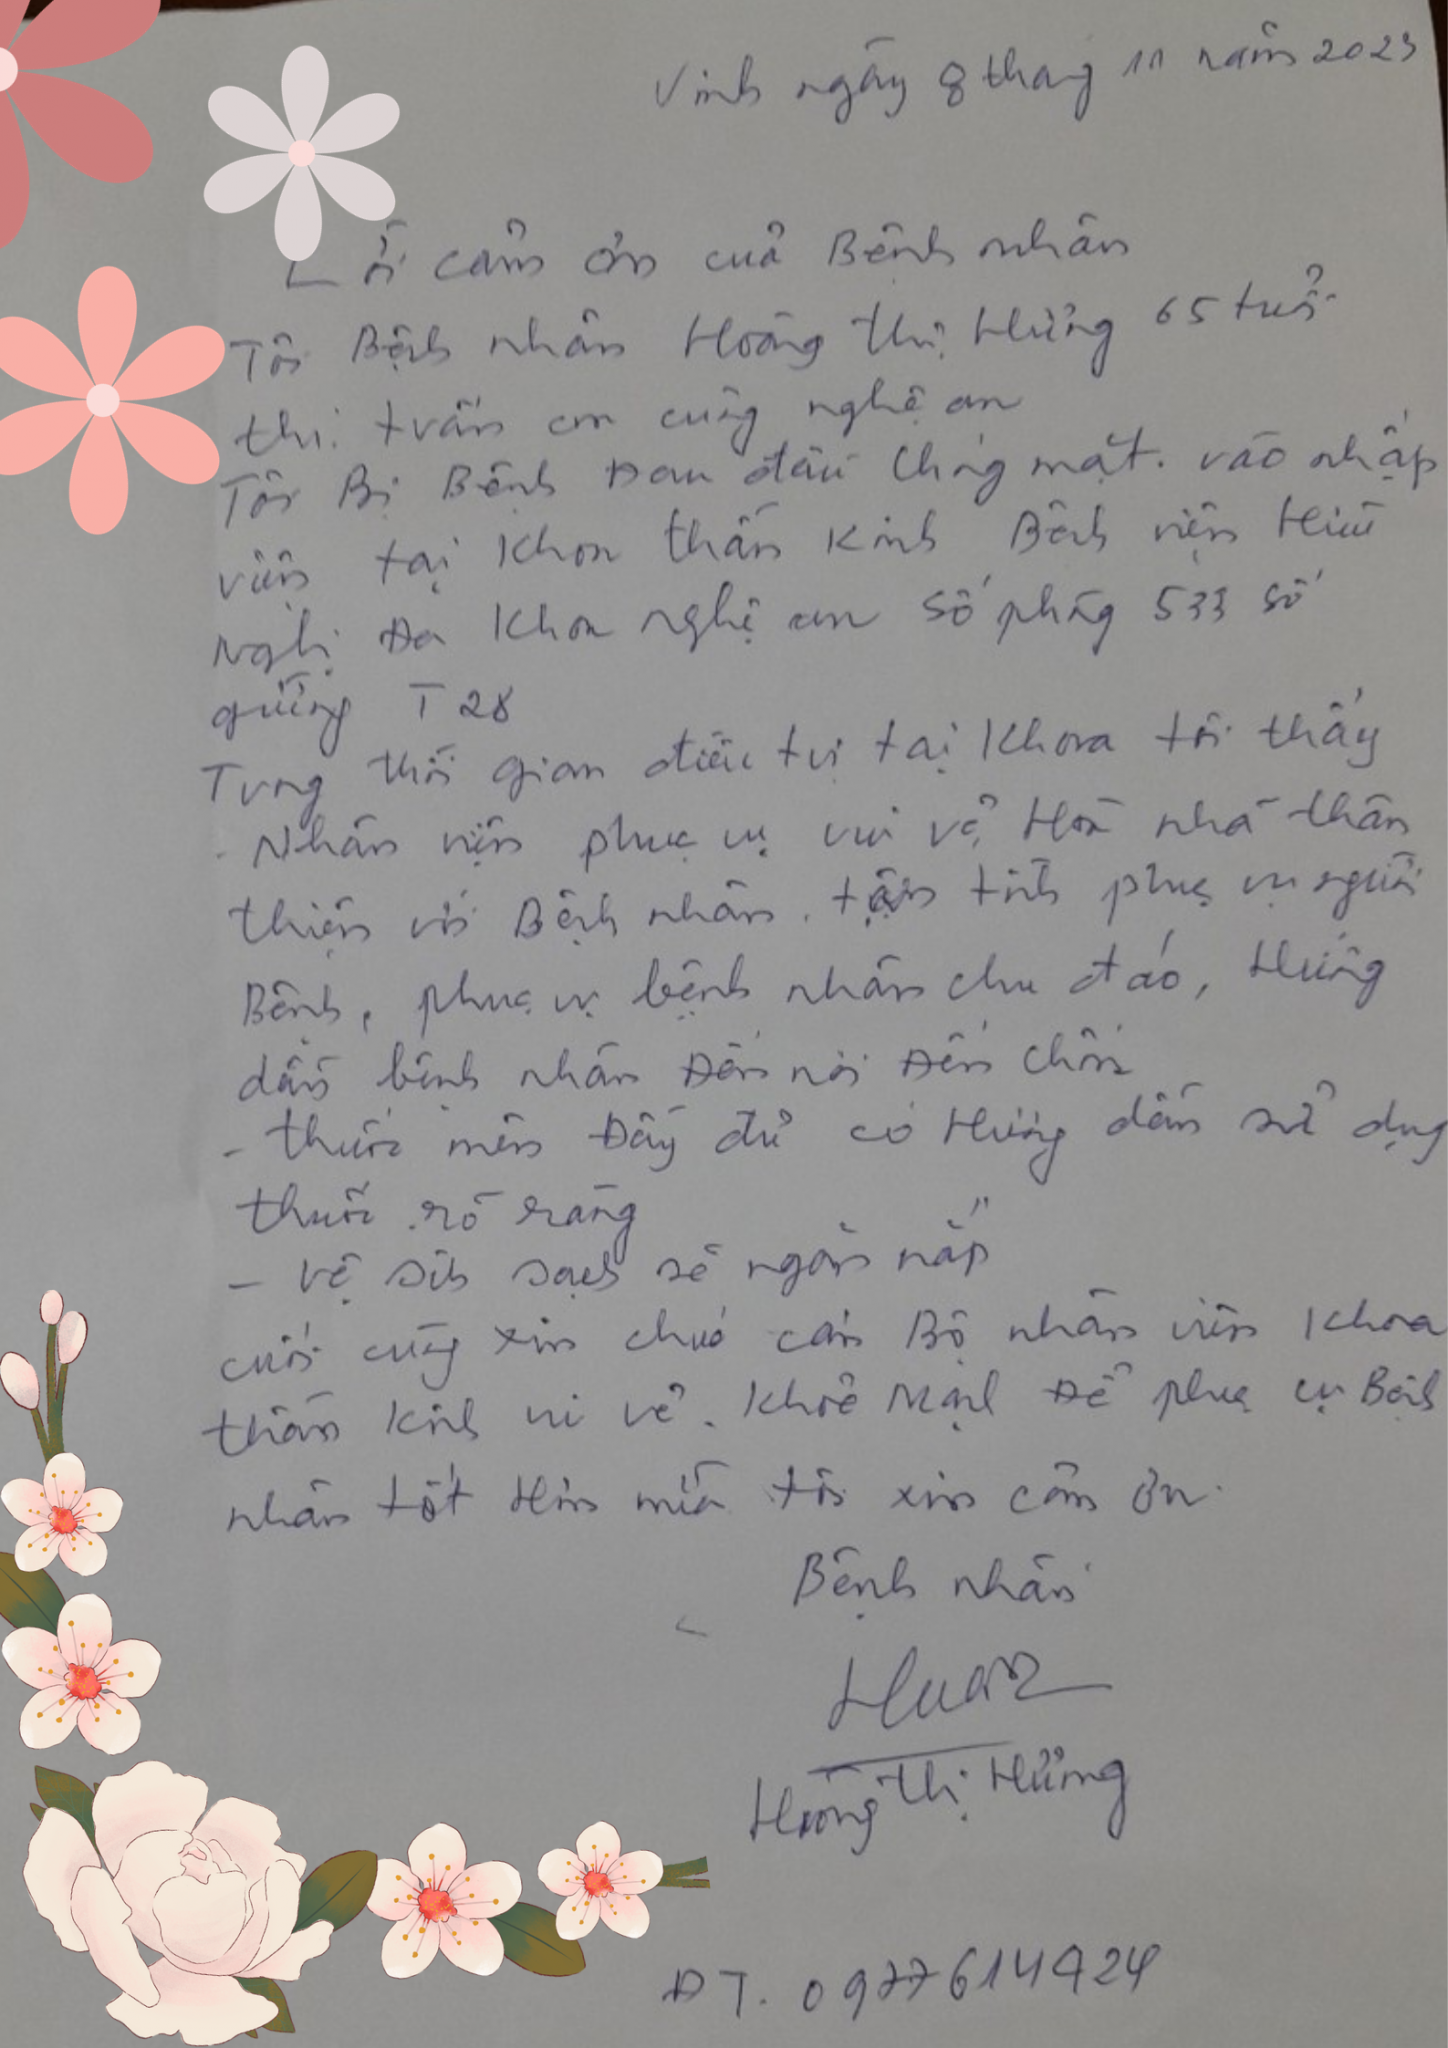 Vinh ngày 8 tháng 11 năm 2023
Lời cảm ơn của Bệnh nhân
Tôi Bệnh nhân Hoàng Thị Hường 65 tuổi
thị trấn con cuông nghệ an
Tôi Bị Bệnh Đau đầu Chóng mặt. vào nhập
viện tại Khoa thần Kinh Bệnh viện Hữu
Nghị Đa Khoa nghệ an số phòng 533 số
giường T 28
Trong thời gian điều trị tại Khoa tôi thấy
- Nhân viên phục vụ vui vẻ Hoà nhã thân
thiện với Bệnh nhân. tận tình phục vụ người
Bệnh, phục vụ bệnh nhân chu đáo, Hướng
dẫn bệnh nhân Đến nơi Đến chốn
- thuốc men Đầy đủ có Hướng dẫn sử dụng
thuốc rõ ràng
- vệ sinh sạch sẽ ngăn nắp
cuối cùng xin chúc cán Bộ nhân viên Khoa
thần Kinh vui vẻ. Khoẻ Mạnh Để phục vụ Bệnh
nhân tốt Hơn nữa tôi xin cảm ơn.
Bệnh nhân
Hoàng Thị Hường
ĐT. 0977614924